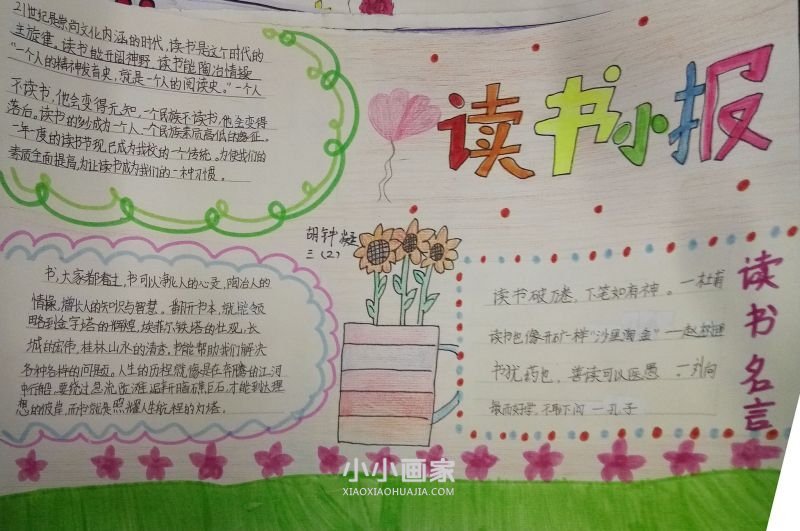 21世纪是崇尚文化内涵的时代,读书是这个时代的
主旋律。读书能开阔神野,读书能陶冶情操
“一个人的精神发育史,就是一个人的阅读史。”一个人
不读书,他会变得无知,一个民族不读书,他会变得
落后。读书的妙成为一个人、一个民族素质高低的路征。
一年一度的读书节现已成为我校的一个传统。为使我们的
素质全面提高,为让读书成为我们的一种习惯。
读书小报
胡钟凝
三(2)
书,大家都看过,书可以净化人的心灵,陶冶人的
情操,增长人的知识与智慧。翻开书本,就能领
略到金字塔的辉煌,埃菲尔铁塔的壮观,长
城的宏伟,桂林山水的清秀。书能帮助我们解决
各种各样的问题。人生的历程就像是在奔腾的江河
中行船,要绕过急流险滩,避开暗礁巨石,才能到达理
想的彼岸,而书就是照耀人生航程的灯塔。
读书名言
读书破万卷,下笔如有神。—杜甫
读书也像开矿一样“沙里淘金”—赵树理
书犹药也,善读可以医愚。—刘向
敏而好学,不耻下问—孔子
小小画家
XIAOXIAOHUAJIA.COM